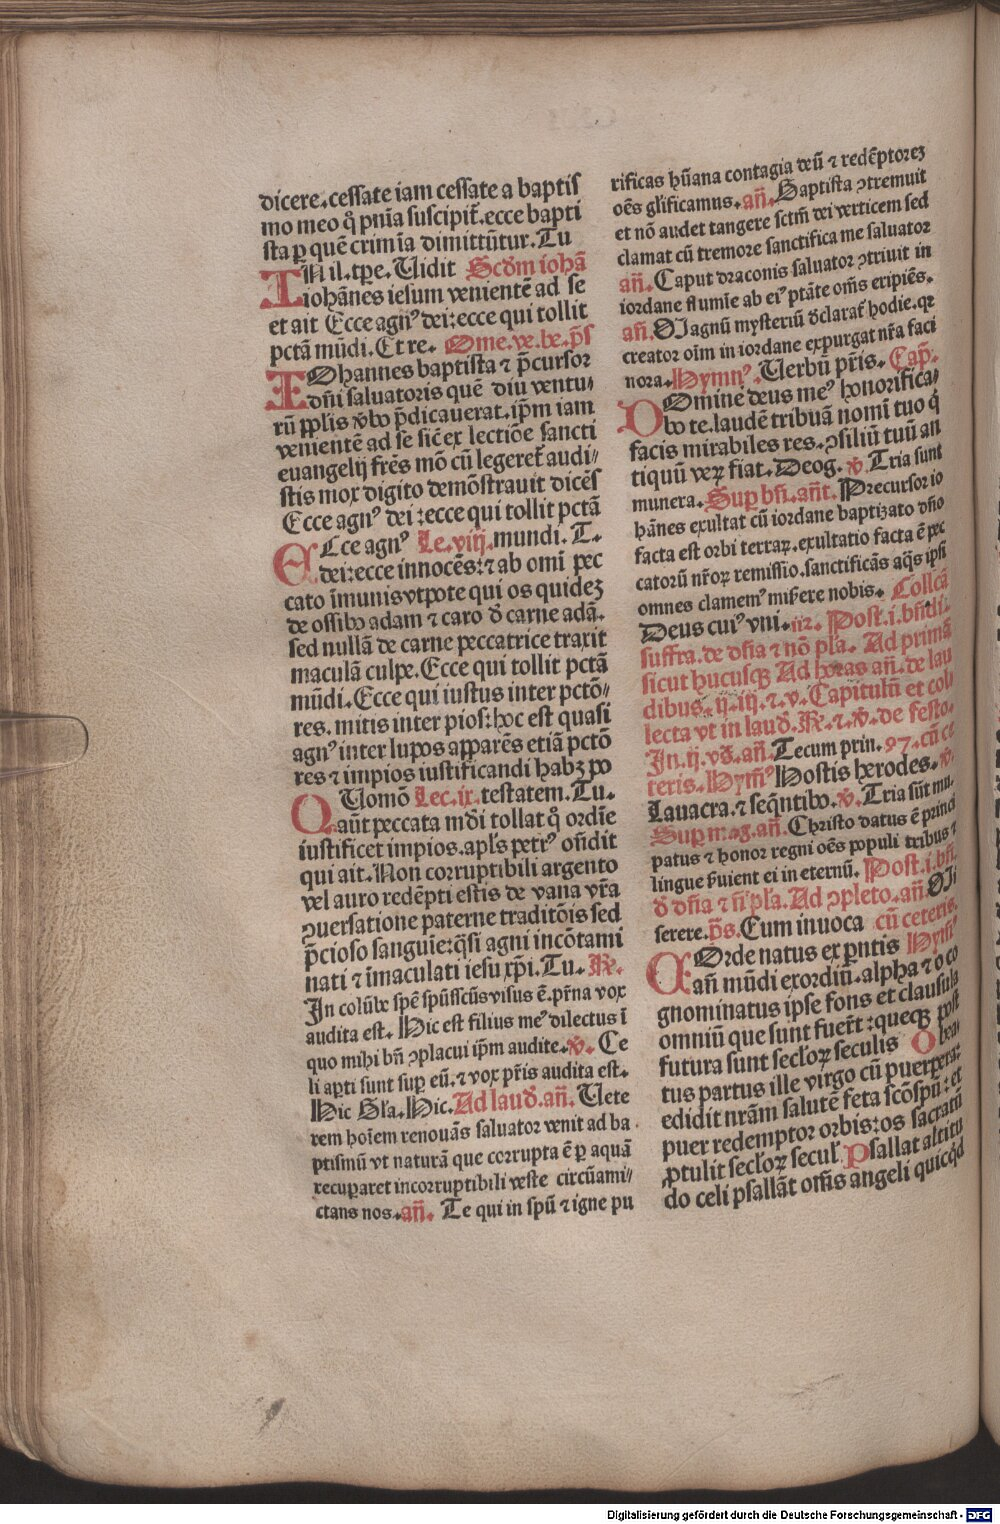 dicere. cessate iam cessate a baptis
mo meo q̊ pnīa suscipit̄. ecce bapti
sta ꝑ quē crimīa dimittūtur. Tu
IN il. tꝑe. Vidit Scd̄m iohā
iohānes iesum venientē ad se
et ait Ecce agnꝰ dei: ecce qui tollit
pctā mūdi. Et re. Ome. ve. be. p̄s
IOhannes baptista ⁊ p̄cursor
dn̄i saluatoris quē diu ventu-
rū pp̄lis v̄bo p̄dicauerat. ip̄m iam
venientē ad se sic̄ ex lectiōe sancti
euangelij fr̄es mō cū legeret̄ audi-
stis mox digito demōstrauit dicēs
Ecce agnꝰ dei: ecce qui tollit pctā
ECce agnꝰ Le. viij. mundi. T.
dei: ecce innocēs: ⁊ ab om̄i pec
cato īmunis vtpote qui os quidez
de ossibꝰ adam ⁊ caro d̄ carne adā.
sed nullā de carne peccatrice traxit
maculā culpe. Ecce qui tollit pctā
mūdi. Ecce qui iustus inter pctō-
res. mitis inter pios: hoc est quasi
agnꝰ inter lupos apparēs etiā pctō
res ⁊ impios iustificandi habꝫ po
QUomō Lec. ix. testatem. Tu.
aūt peccata mūdi tollat q̊ ordīe
iustificet impios. apl̄s petrꝰ on̄dit
qui ait. Non corruptibili argento
vel auro redēpti estis de vana vr̄a
ꝯuersatione paterne traditōis sed
p̄cioso sanguīe: q̄si agni incōtami
nati ⁊ īmaculati iesu xp̄i. Tu. R̄.
In colūbe spē spūssc̄us visus ē. pr̄na vox
audita est. Hic est filius meꝰ dilectus ī
quo mihi bn̄ ꝯplacui ip̄m audite. v̄. Ce
li aꝑti sunt suꝑ eū. ⁊ vox pr̄is audita est.
Hic Gl̄a. Hic. Ad laud̄. an̄. Vete
rem hoīem renouās saluator venit ad ba
ptismū vt naturā que corrupta ē ꝑ aquā
recuꝑaret incorruptibili veste circūami-
ctans nos. an̄. Te qui in spū ⁊ igne pu
rificas hūana contagia deū ⁊ redēptorez
oēs glīficamus. an̄. Baptista ꝯtremuit
et nō audet tangere sctm̄ dei verticem sed
clamat cū tremore sanctifica me saluator
an̄. Caput draconis saluator ꝯtriuit in
iordane flumīe ab eiꝰ ptāte om̄s eripiēs.
an̄. OJ agnū mysteriū d̄clarat̄ hodie. qꝛ
creator oīm in iordane expurgat nr̄a faci
nora. Hymnꝰ. Verbū pr̄is. Cap̄.
DOmine deus meꝰ honorifica-
bo te. laudē tribuā nomī tuo q̄
facis mirabiles res. ꝯsiliū tuū an
tiquū veꝝ fiat. Deog. v̄. Tria sunt
munera. Suꝑ bn̄. an̄t. Precursor io
hānes exultat cū iordane baptizato dn̄o
facta est orbi terraꝝ. exultatio facta ē pec
catorū nr̄oꝝ remissio. sanctificās aq̄s ip̄si
omnes clamemꝰ mis̄ere nobis. Collcā
Deus cuiꝰ vni. ur. Post. i. bn̄di.
suffra. de dn̄a ⁊ nō pl̄a. Ad primā
sicut hucusqꝫ Ad horas an̄. de lau
dibus. ij. iij. ⁊. v. Capitulū et col
lecta vt in laud̄. R̄. ⁊. v̄. de festo.
In. ij. vd̄. an̄. Tecum prin. 97. cū ce
teris. Hym̄ꝰ Hostis herodes. v̄.
Lauacra. ⁊ seq̄ntibꝰ. v̄. Tria sūt mu.
Suꝑ mag. an̄. Christo datus ē princi
patus ⁊ honor regni oēs populi tribus ⁊
lingue s̄uient ei in eternū. Post. i. bn̄.
d̄ dn̄a ⁊ n̄ pl̄a. Ad ꝯpleto. an̄. OJi
serere. p̄s. Cum inuoca cū ceteris.
COrde natus ex pn̄tis Hym̄ꝰ
an̄ mūdi exordiū. alpha ⁊ o co
gnominatus ipse fons et clausula
omniū que sunt fuer̄t: quecꝫ post
futura sunt secl̄oꝝ seculis O bea
tus partus ille virgo cū puerpera:
edidit nrām salutē feta scōspū: et
puer redemptor orbis: os sacratū
ꝓtulit secl̄oꝝ secul̄ Psallat altitu
do celi psallāt om̄s angeli quicq̄d
Digitalisierung gefördert durch die Deutsche Forschungsgemeinschaft - DFG